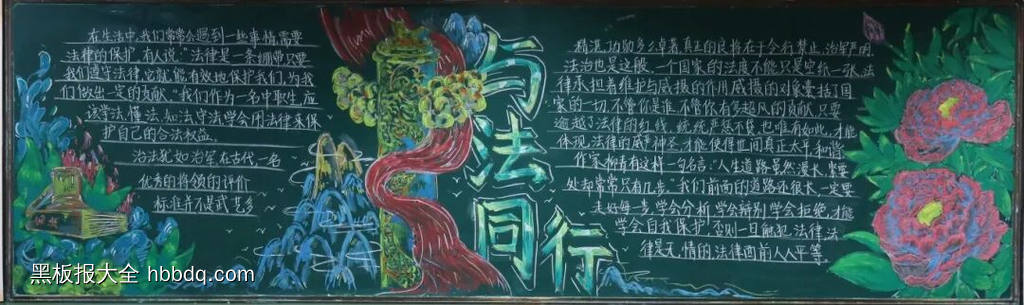 在生活中,我们常常会遇到一些事情需要
法律的保护,有人说:“法律是一条绷带只要
我们遵守法律,它就能有效地保护我们,为我
们做出一定的贡献.”我们作为一名中职生,应
该学法、懂法、知法守法学会用法律来保
护自己的合法权益.
治法犹如治军在古代,一名
优秀的将领的评价
标准并不是武艺多
与法同行
精湛,功勋多么卓著,真正的良将在于令行禁止,治军严明,
法治也是这般、一个国家的法度不能只是空纸一张,法
律承担着维护与威摄的作用威摄的对象囊括了国
家的一切,不管你是谁,不管你有多超凡的贡献,只要
逾越了法律的红线,统统严惩不贷,也唯有如此,才能
体现法律的威严神圣,才能使得世间真正太平和谐
作家柳青有这样一句名言:“人生道路虽然漫长,紧要
处却常常只有几步.”我们前面的道路还很长,一定要
走好每一步,学会分析,学会辩别,学会拒绝,才能
学会自我保护,否则一旦触犯法律,法
律是无情的,法律面前人人平等.
黑板报大全 hbbdq.com